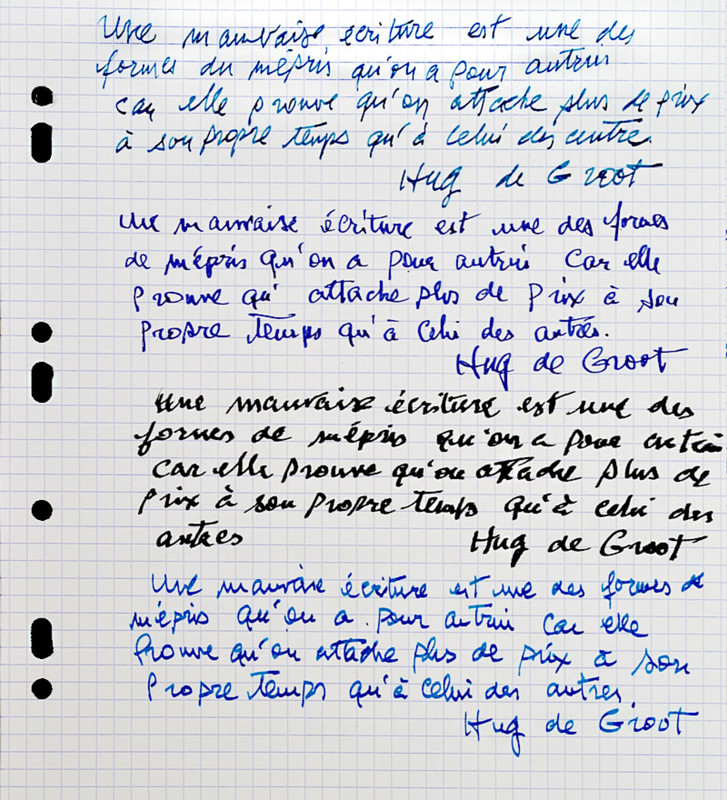 Une mauvaise écriture est une des
formes du mépris qu'on a pour autrui
car elle prouve qu'on attache plus de prix
à son propre temps qu'à celui des autre.
Hug de Groot
Une mauvaise écriture est une des formes
de mépris qu'on a pour autrui car elle
prouve qu' attache plus de prix à son
propre temps qu'à celui des autres.
Hug de Groot
Une mauvaise écriture est une des
formes de mépris qu'on a pour autrui
car elle prouve qu'on attache plus de
prix à son propre temps qu'à celui des
autres Hug de Groot
Une mauvaise écriture est une des formes de
mépris qu'on a pour autrui car elle
prouve qu'on attache plus de prix à son
propre temps qu'à celui des autres.
Hug de Groot